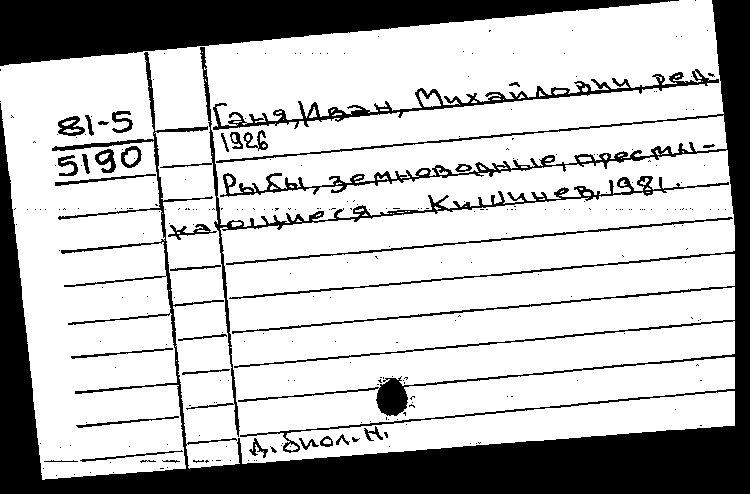 81-5
5190
Ганя, Иван, Михайлович, ред.
1926
Рыбы, земноводные, пресмы-
кающиеся. — Кишинев, 1981.
д. биол. н.